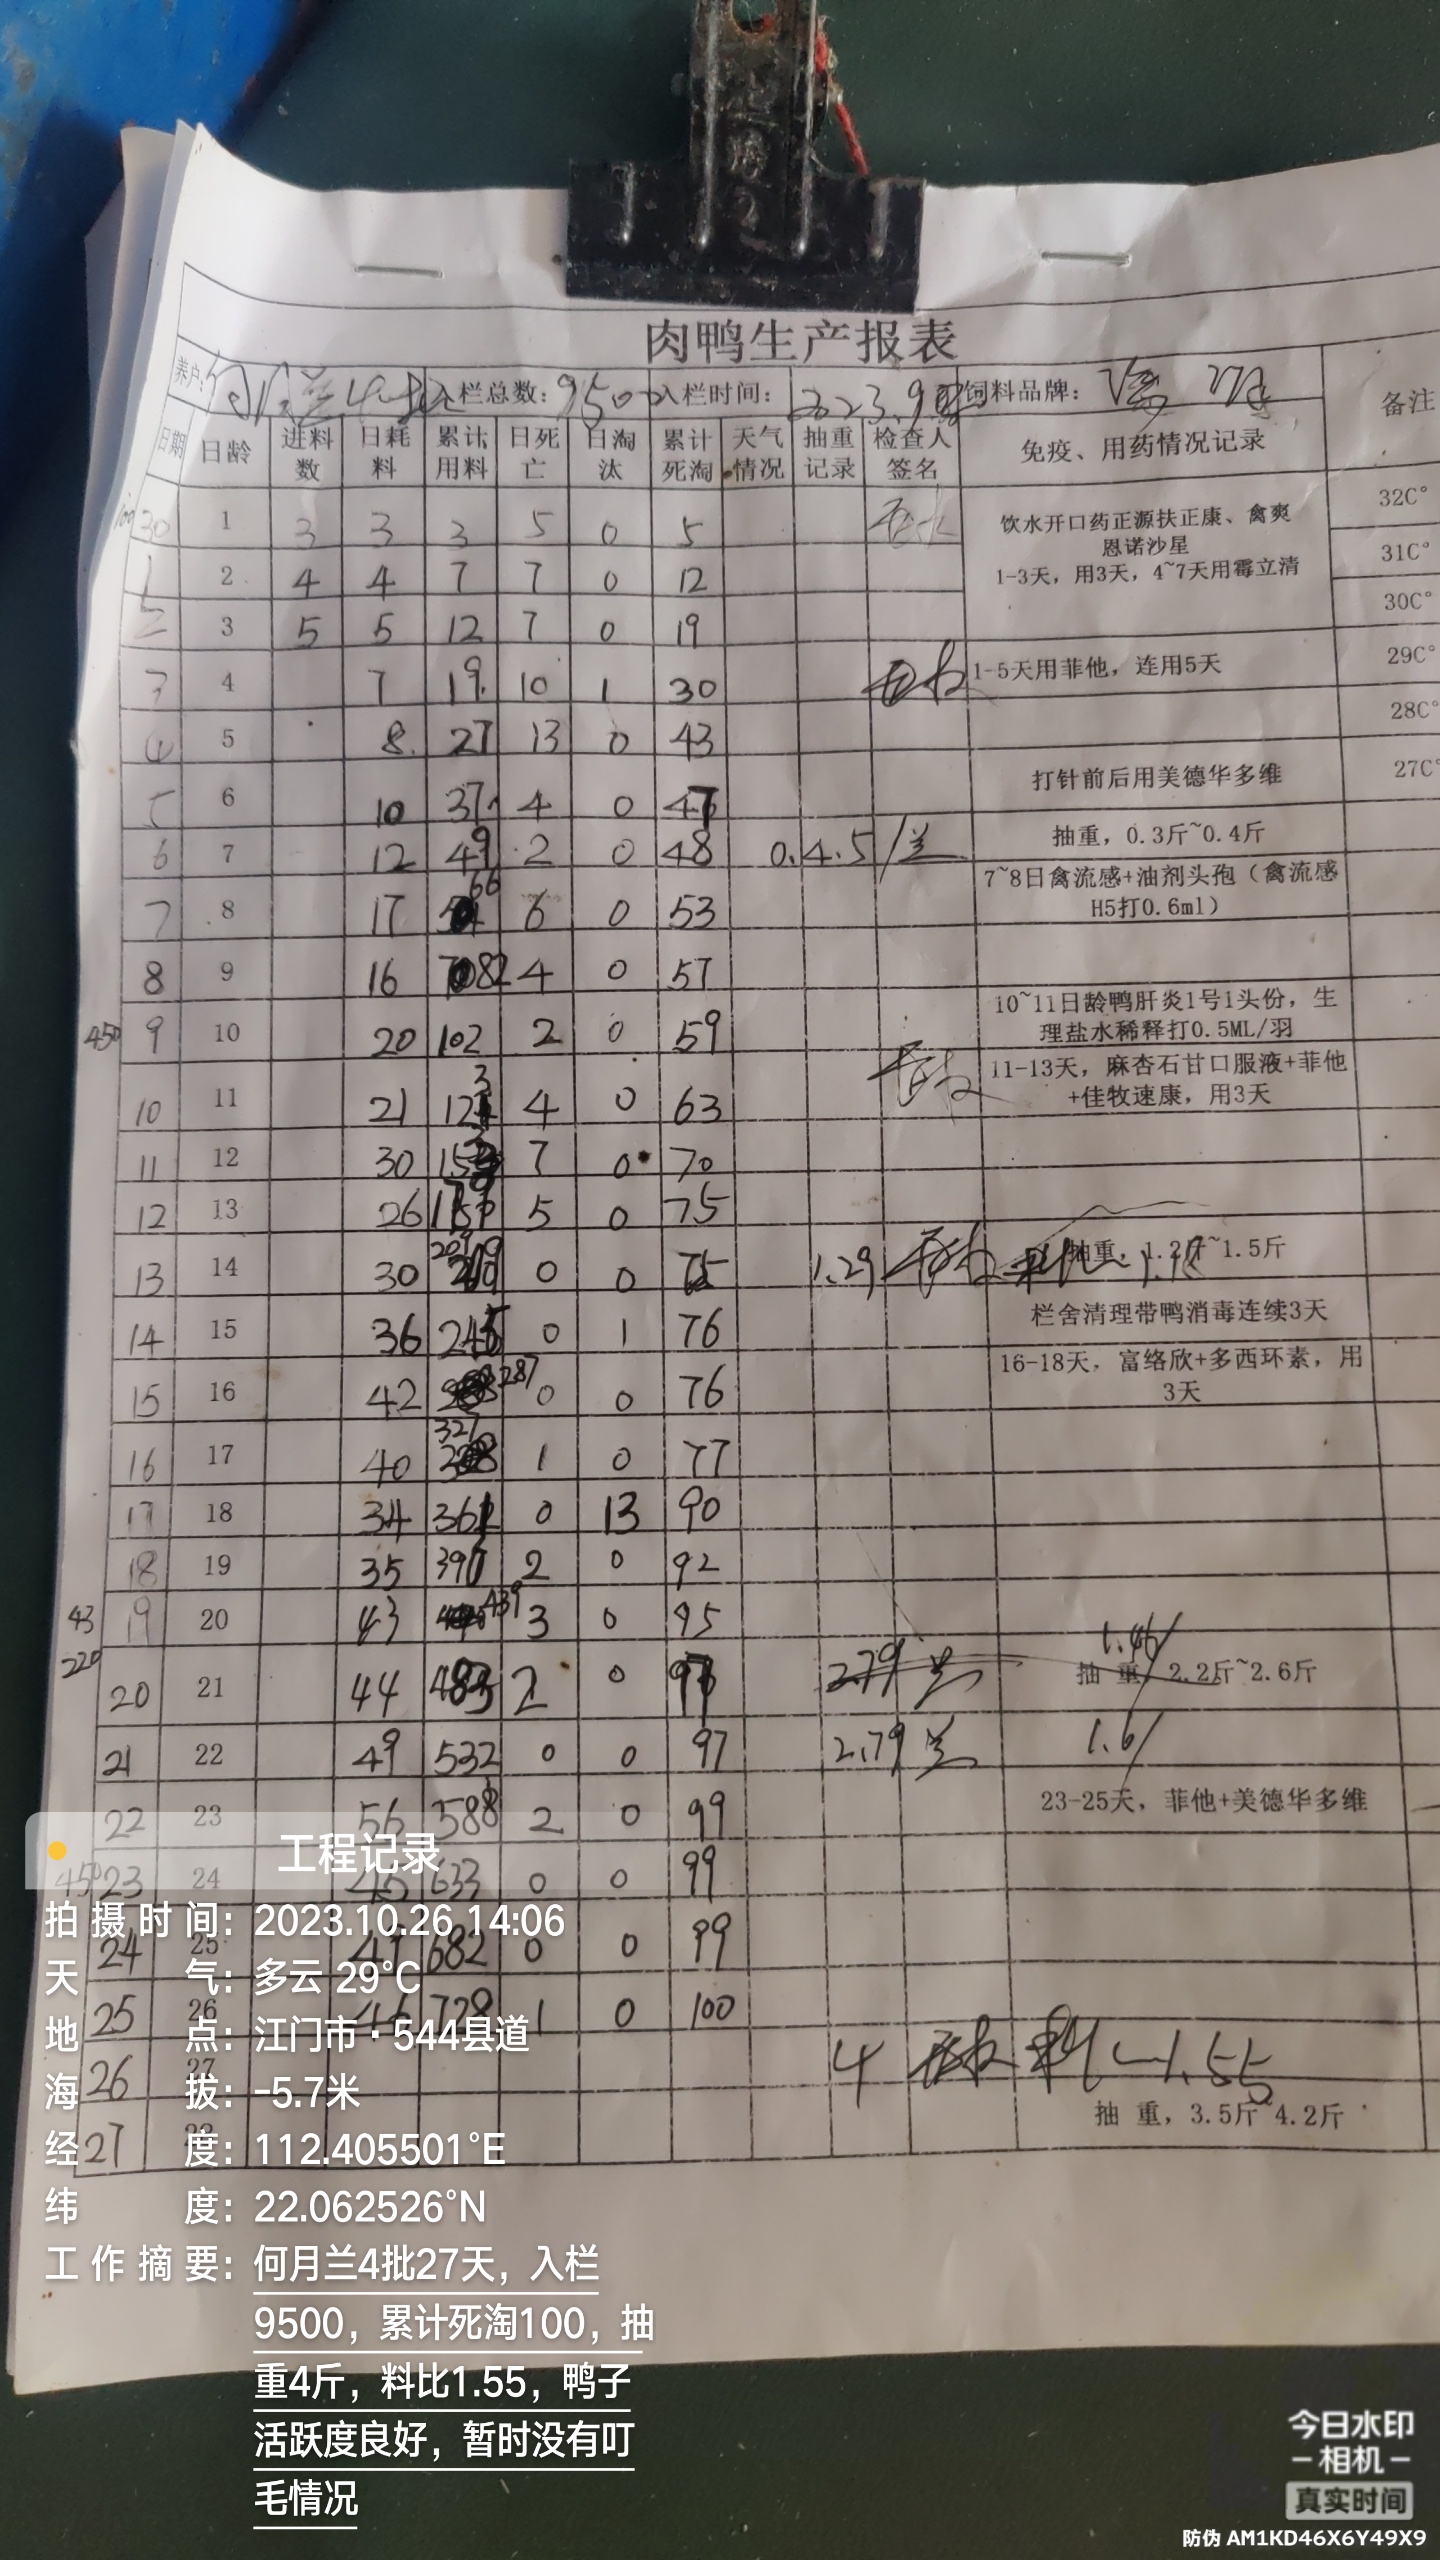 肉鸭生产报表
养户: 何月兰4批 入栏总数: 9500 入栏时间: 2023.9. 饲料品牌: 备注
日期 日龄 进料数 日耗料 累计用料 日死亡 日淘汰 累计死淘 天气情况 抽重记录 检查人签名 免疫、用药情况记录
30 1 3 3 3 5 0 5 32C°
饮水开口药正源扶正康、禽爽
恩诺沙星
1-3天，用3天，4~7天用霉立清
1 2 4 4 7 7 0 12 31C°
2 3 5 5 12 7 0 19 30C°
3 4 7 19 10 1 30 1-5天用菲他，连用5天 29C°
4 5 8 27 13 0 43 28C°
5 6 10 37 4 0 47 打针前后用美德华多维 27C°
6 7 12 49 2 0 48 0.4.5/兰 抽重，0.3斤~0.4斤
7 8 17 66 6 0 53 7~8日禽流感+油剂头孢（禽流感
H5打0.6ml）
8 9 16 82 4 0 57
450 9 10 20 102 2 0 59 10~11日龄鸭肝炎1号1头份，生
理盐水稀释打0.5ML/羽
10 11 21 123 4 0 63 11-13天，麻杏石甘口服液+菲他
+佳牧速康，用3天
11 12 30 153 7 0 70
12 13 26 179 5 0 75
13 14 30 209 0 0 75 1.29 抽重，1.2斤~1.5斤
14 15 36 245 0 1 76 栏舍清理带鸭消毒连续3天
15 16 42 287 0 0 76 16-18天，富络欣+多西环素，用
3天
16 17 40 327 1 0 77
17 18 34 361 0 13 90
18 19 35 397 2 0 92
43 19 20 43 439 3 0 95
220 20 21 44 483 2 0 97 2.79 兰 1.46 抽 重，2.2斤~2.6斤
21 22 49 532 0 0 97 2.79 兰 1.6
22 23 56 588 2 0 99 23-25天，菲他+美德华多维
450 23 24 45 633 0 0 99
24 25 49 682 0 0 99
25 26 46 728 1 0 100
26 27 4 料比1.55
27 28 抽 重，3.5斤~4.2斤
工程记录
拍摄时间: 2023.10.26 14:06
天气: 多云 29°C
地点: 江门市·544县道
海拔: -5.7米
经度: 112.405501°E
纬度: 22.062526°N
工作摘要: 何月兰4批27天，入栏
9500，累计死淘100，抽
重4斤，料比1.55，鸭子
活跃度良好，暂时没有叮
毛情况
今日水印
相机
真实时间
防伪 AM1KD46X6Y49X9